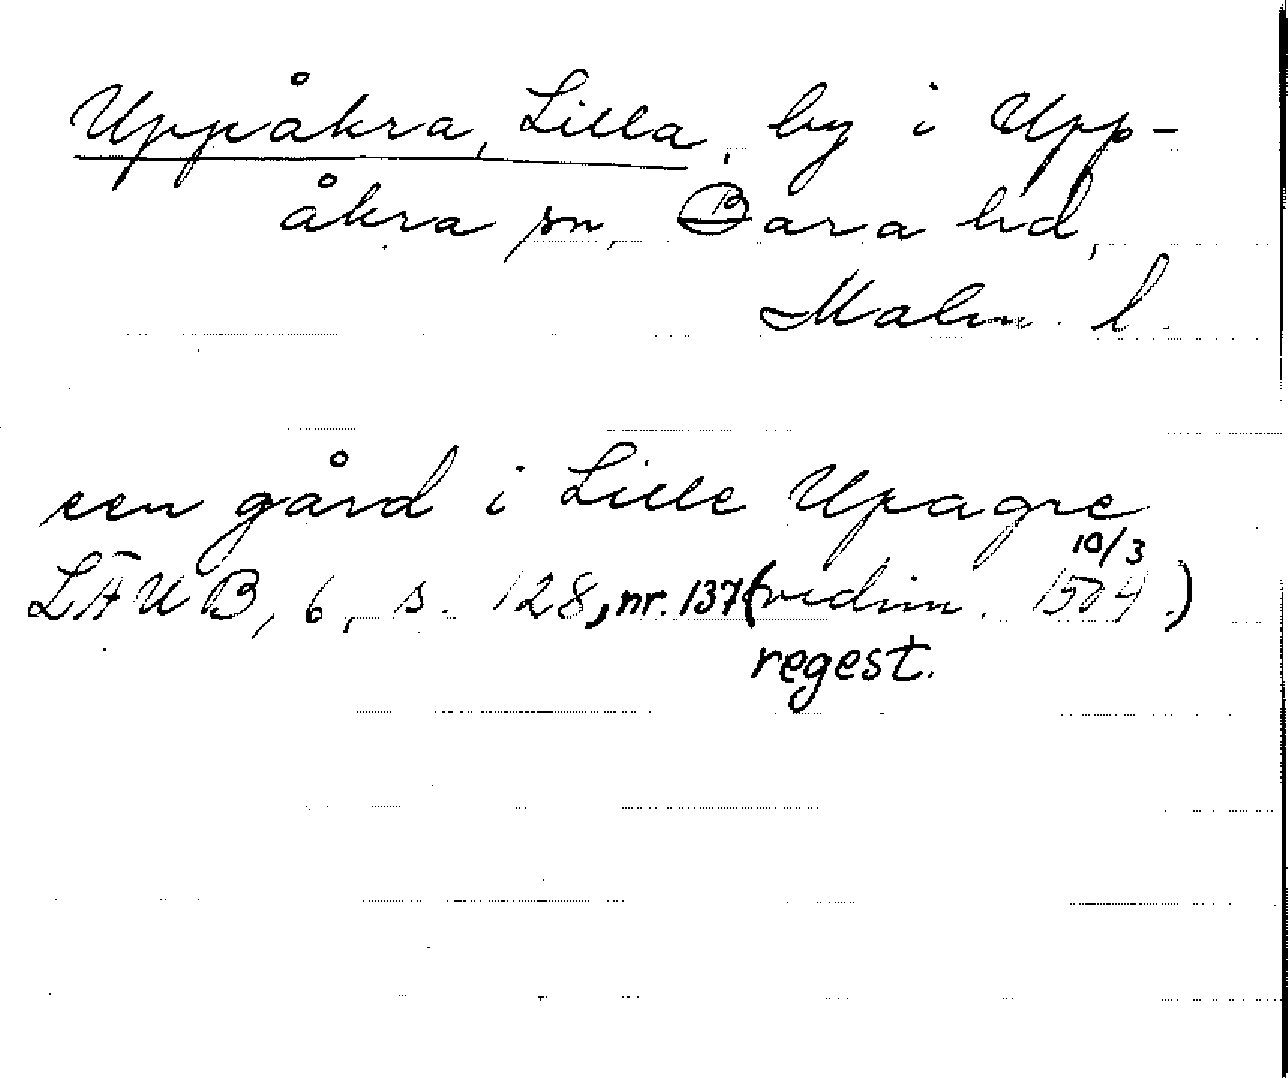 Uppåkra, Lilla, by i Upp-
åkra sn, Bara hd,
Malm. l.
een gård i Lille Upagre
10/3
LÄUB, 6, s. 128, nr. 137 (vidim. 1504.)
regest.